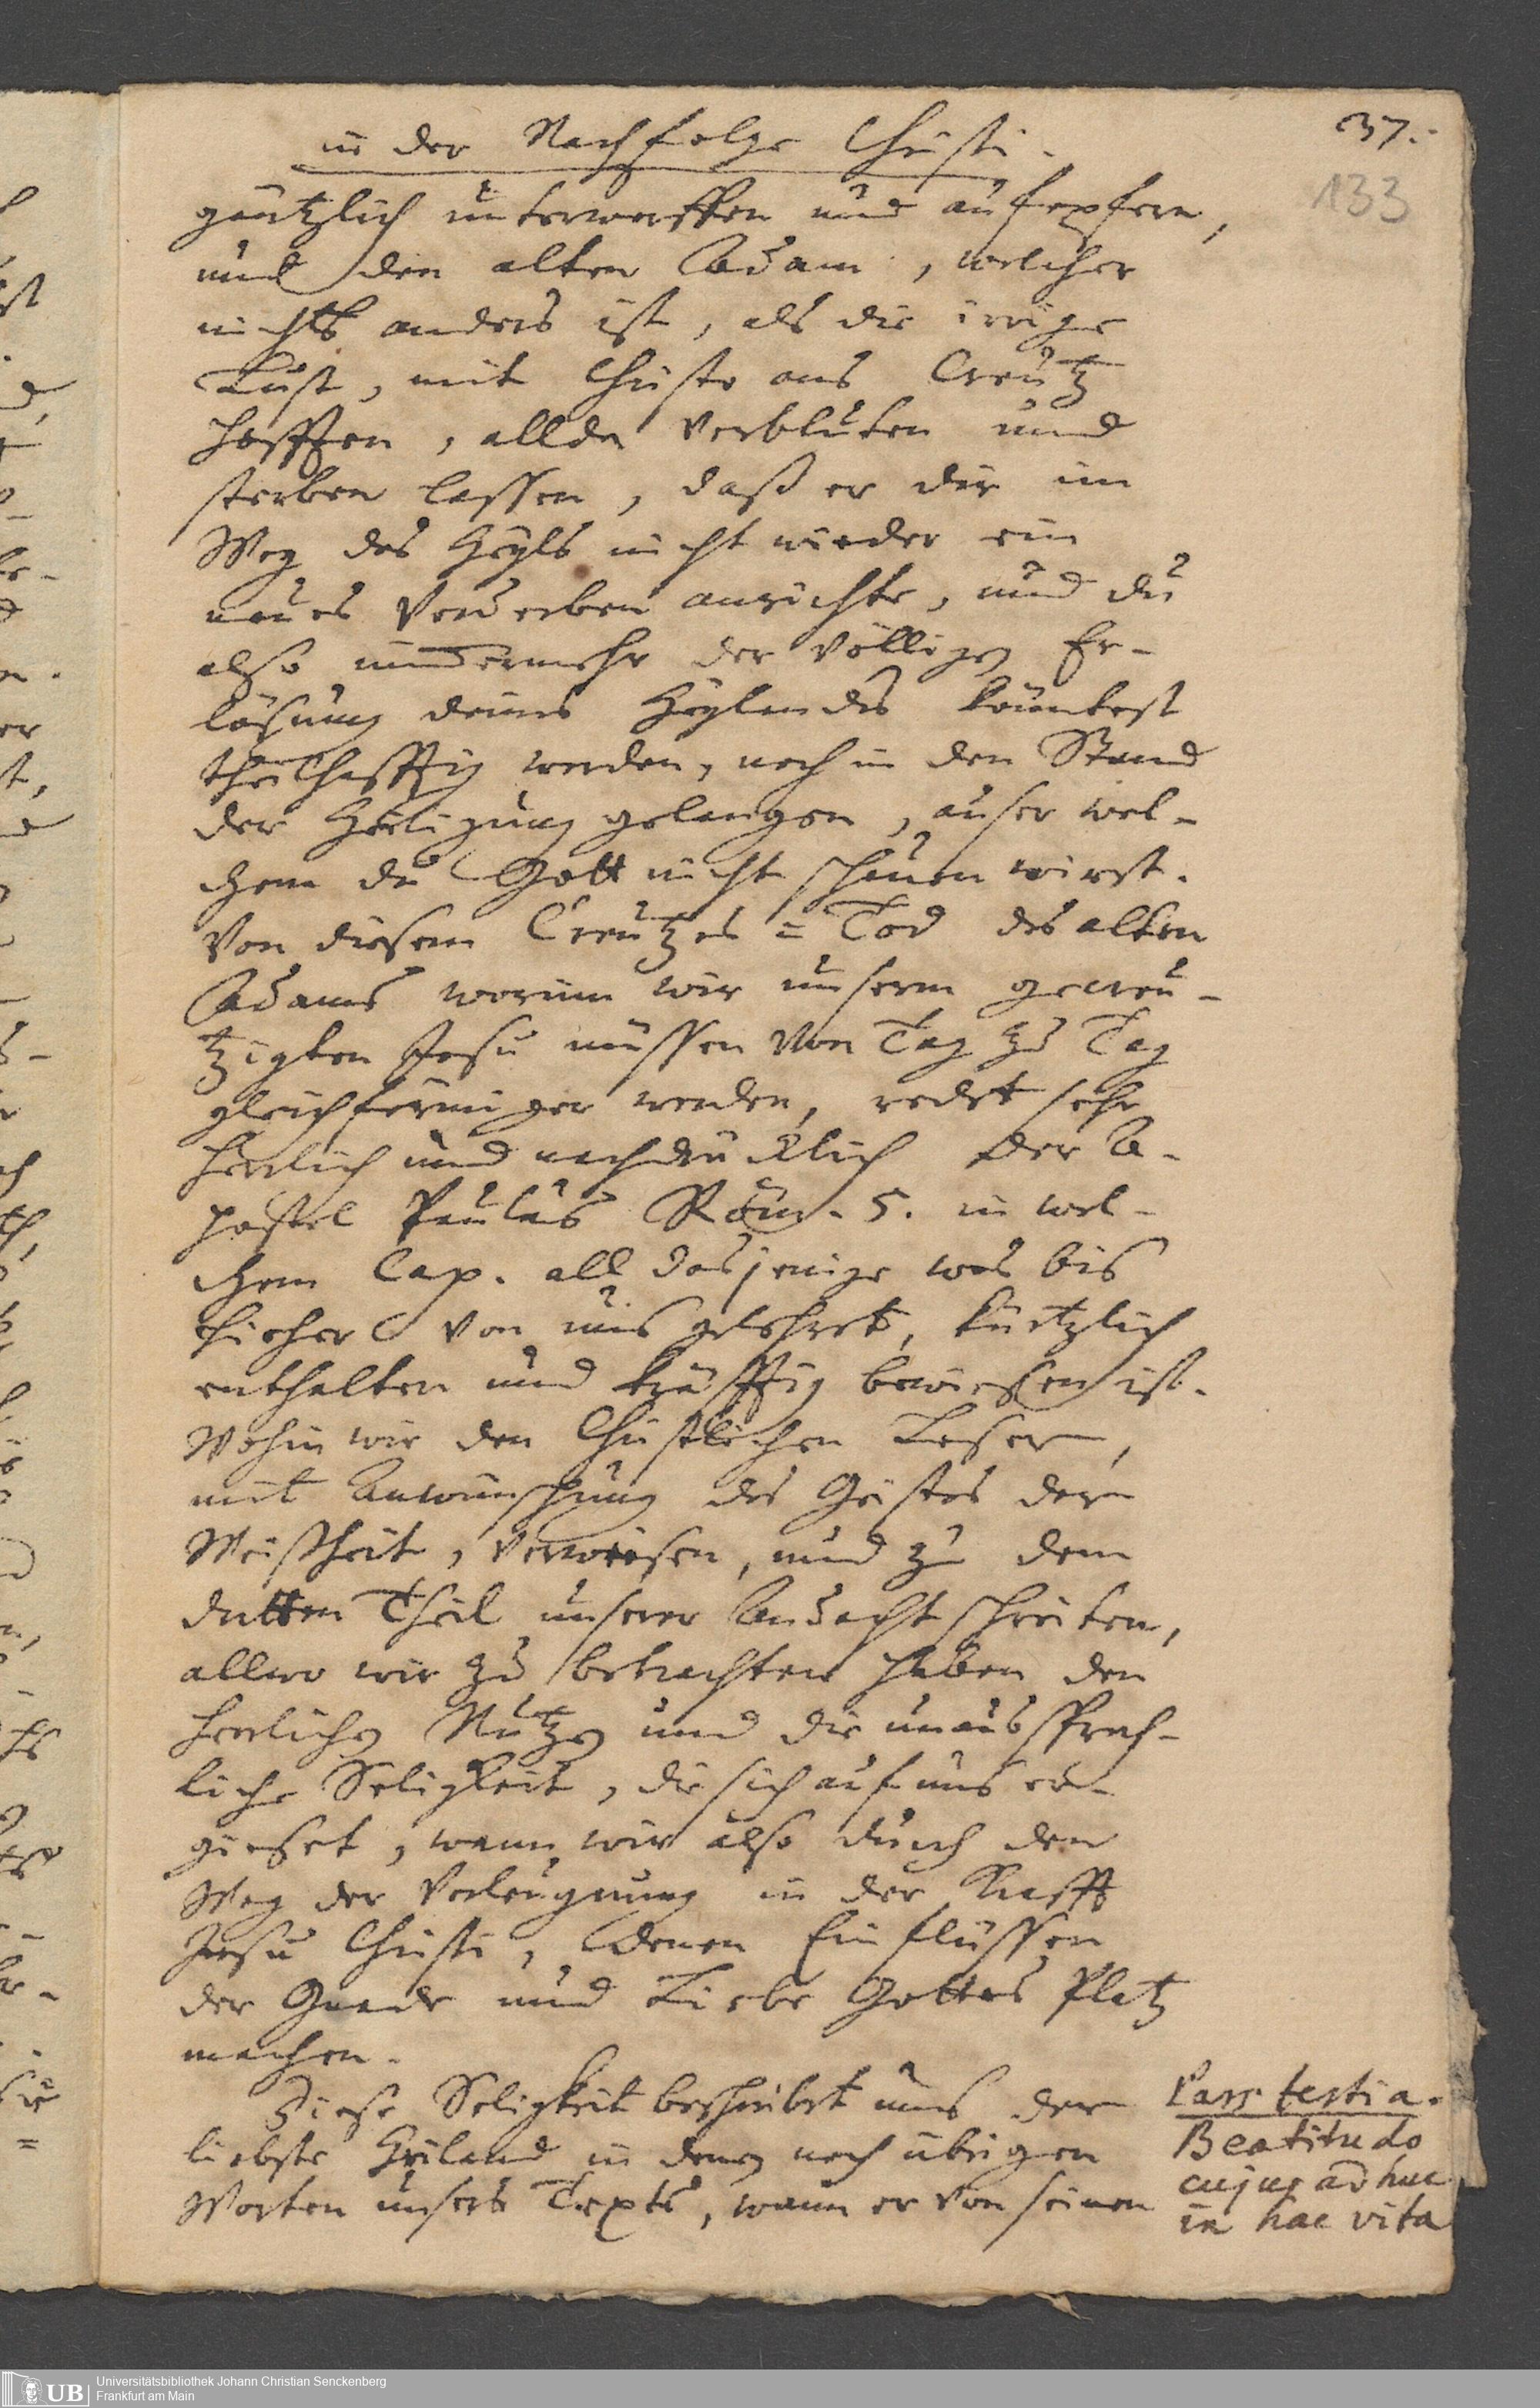 in der Nachfolge Christi.
37.
133
gäntzlich unterwerffen und aufopfern,
und den alten Adam, welcher
nichts anders ist, als die irrige
Lust, mit Christo ans Creutz
hefften, allda verbluten und
sterben lassen, daß er dir im
Weg des Heyls nicht wieder ein
neues Verderben anrichte, und du
also nimmermehr der völligen Er-
lösung deines Heylandes köntest
theilhafftig werden, noch in den Stand
der Heiligung gelangen, auser wel-
chem du Gott nicht schauen wirst.
Von diesem Creutzes-Tod des alten
Adams worinn wir unserm gecreu-
tzigten Jesu müssen von Tag zu Tag
gleichförmiger werden, redet sehr
herrlich und nachdrücklich der A-
postel Paulus Röm. 5. in wel-
chem Cap. all dasjenige was bis
hieher von uns gelehret, kürtzlich
enthalten und kräfftig bewiesen ist.
Wohin wir den Christlichen Leser,
mit Anwünschung des Geistes der
Weißheit, verweisen, und zu dem
dritten Theil unserer Andacht schreiten,
allwo wir zu betrachten haben den
herrlichen Nutzen und die unaussprech-
liche Seligkeit, die sich auf uns er-
gieset, wann wir also durch den
Weg der Verleugnung in der Krafft
Jesu Christi, denen Einflüssen
der Gnade und Liebe Gottes Platz
machen.
Diese Seligkeit beschreibet uns der
liebste Heiland in denen noch übrigen
Worten unsers Texts, wann er von seinen
Pars tertia.
Beatitudo
cujus adhuc
in hac vita
Universitätsbibliothek Johann Christian Senckenberg
Frankfurt am Main
UB